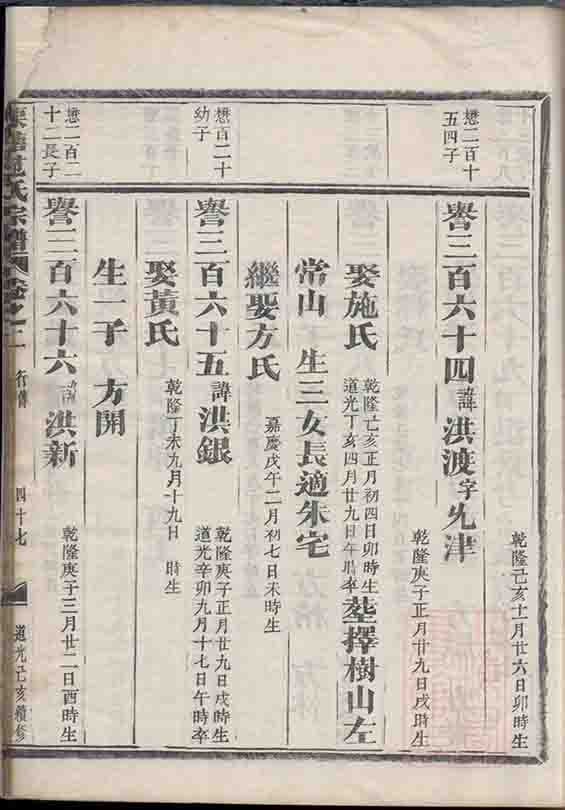 乾隆己亥十一月廿六日卯時生
懋二百十
五四子
譽三百六十四諱洪渡字先津
乾隆庚子正月廿九日戌時生
娶施氏
乾隆己亥正月初四日卯時生
道光丁亥四月廿九日午時卒
塟擇樹山左
常山 生三女長適朱宅
繼娶方氏
嘉慶戊午二月初七日未時生
懋百二十
幼子
譽三百六十五諱洪銀
乾隆庚子正月廿九日戌時生
道光辛卯九月十七日午時卒
娶黃氏
乾隆丁未九月十九日 時生
生一子 方開
懋二百二
十二長子
譽三百六十六諱洪新
乾隆庚子三月廿二日酉時生
氏宗譜 卷之二 行傳 四十七 道光己亥續修